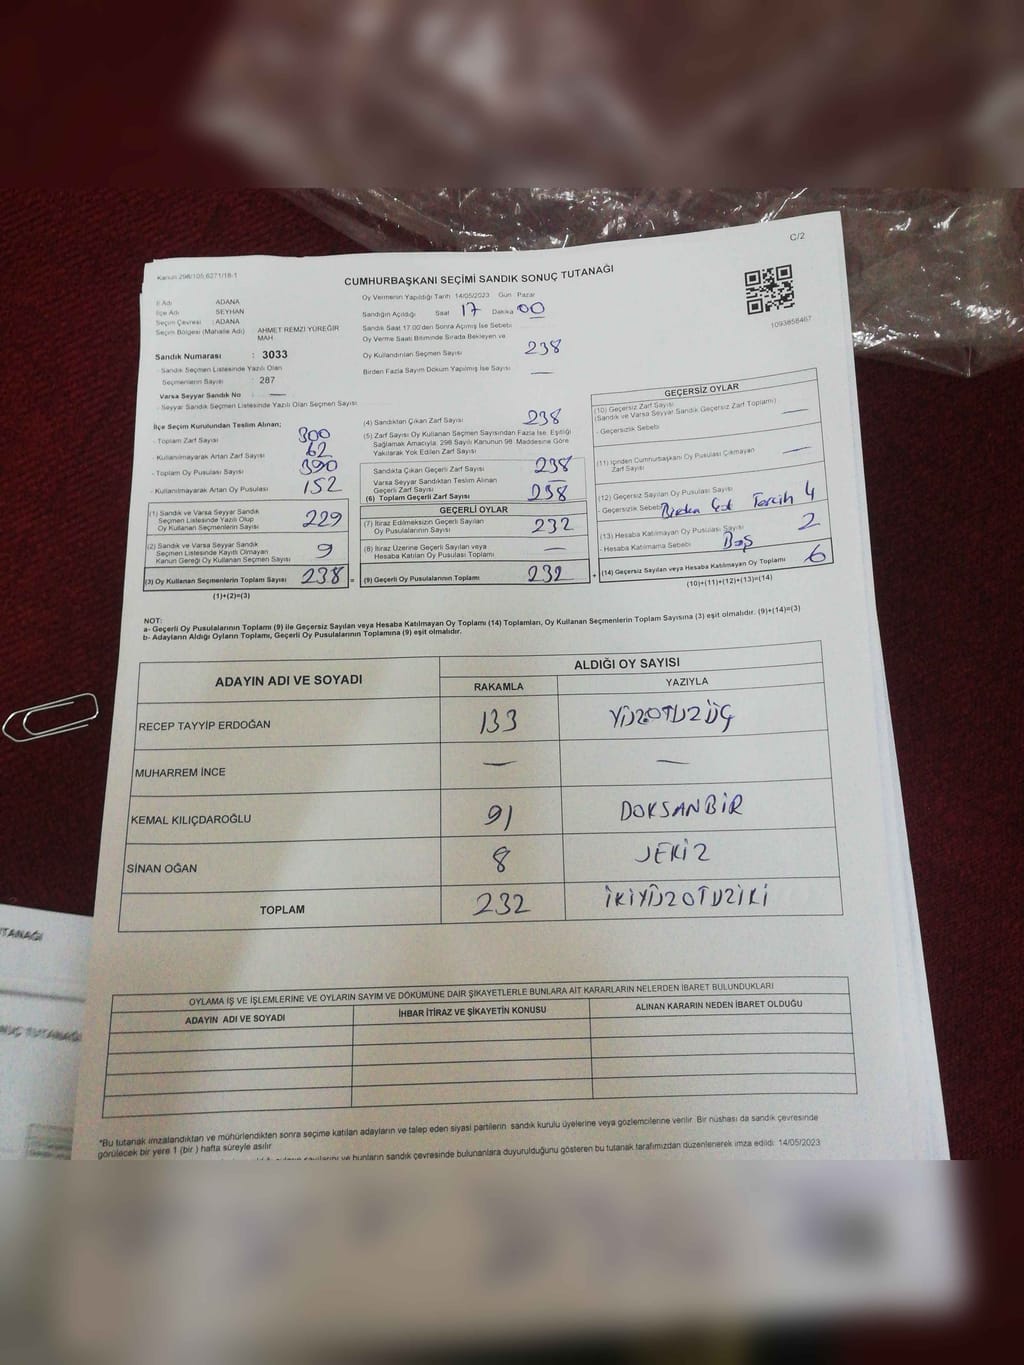 C/2
Kanun 298/105,6271/18-1
CUMHURBAŞKANI SEÇİMİ SANDIK SONUÇ TUTANAĞI
İl Adı ADANA
İlçe Adı SEYHAN
Seçim Çevresi : ADANA
Seçim Bölgesi (Mahalle Adı) AHMET REMZİ YÜREĞİR MAH
Sandık Numarası : 3033
- Sandık Seçmen Listesinde Yazılı Olan
Seçmenlerin Sayısı : 287
Varsa Seyyar Sandık No : —
- Seyyar Sandık Seçmen Listesinde Yazılı Olan Seçmen Sayısı
Oy Vermenin Yapıldığı Tarih 14/05/2023 Gün Pazar
Sandığın Açıldığı Saat 17 Dakika 00
Sandık Saat 17.00'den Sonra Açılmış İse Sebebi
Oy Verme Saati Bitiminde Sırada Bekleyen ve
Oy Kullandırılan Seçmen Sayısı 238
Birden Fazla Sayım Döküm Yapılmış İse Sayısı —
1093858467
İlçe Seçim Kurulundan Teslim Alınan;
- Toplam Zarf Sayısı 300
- Kullanılmayarak Artan Zarf Sayısı 62
- Toplam Oy Pusulası Sayısı 390
- Kullanılmayarak Artan Oy Pusulası 152
(1) Sandık ve Varsa Seyyar Sandık
Seçmen Listesinde Yazılı Olup
Oy Kullanan Seçmenlerin Sayısı 229
(2) Sandık ve Varsa Seyyar Sandık
Seçmen Listesinde Kayıtlı Olmayan
Kanun Gereği Oy Kullanan Seçmen Sayısı 9
(3) Oy Kullanan Seçmenlerin Toplam Sayısı 238 =
(1)+(2)=(3)
(4) Sandıktan Çıkan Zarf Sayısı 238
(5) Zarf Sayısı Oy Kullanan Seçmen Sayısından Fazla İse, Eşitliği
Sağlamak Amacıyla; 298 Sayılı Kanunun 98. Maddesine Göre
Yakılarak Yok Edilen Zarf Sayısı
Sandıkta Çıkan Geçerli Zarf Sayısı 238
Varsa Seyyar Sandıktan Teslim Alınan
Geçerli Zarf Sayısı —
(6) Toplam Geçerli Zarf Sayısı 238
GEÇERLİ OYLAR
(7) İtiraz Edilmeksizin Geçerli Sayılan
Oy Pusulalarının Sayısı 232
(8) İtiraz Üzerine Geçerli Sayılan veya
Hesaba Katılan Oy Pusulası Toplamı —
(9) Geçerli Oy Pusulalarının Toplamı 232 +
GEÇERSİZ OYLAR
(10) Geçersiz Zarf Sayısı
(Sandık ve Varsa Seyyar Sandık Geçersiz Zarf Toplamı) —
- Geçersizlik Sebebi
(11) İçinden Cumhurbaşkanı Oy Pusulası Çıkmayan
Zarf Sayısı —
(12) Geçersiz Sayılan Oy Pusulası Sayısı 4
- Geçersizlik Sebebi Birden Çok Tercih
(13) Hesaba Katılmayan Oy Pusulası Sayısı 2
- Hesaba Katılmama Sebebi Boş
(14) Geçersiz Sayılan veya Hesaba Katılmayan Oy Toplamı 6
(10)+(11)+(12)+(13)=(14)
NOT:
a- Geçerli Oy Pusulalarının Toplamı (9) ile Geçersiz Sayılan veya Hesaba Katılmayan Oy Toplamı (14) Toplamları, Oy Kullanan Seçmenlerin Toplam Sayısına (3) eşit olmalıdır. (9)+(14)=(3)
b- Adayların Aldığı Oyların Toplamı, Geçerli Oy Pusulalarının Toplamına (9) eşit olmalıdır.
ADAYIN ADI VE SOYADI ALDIĞI OY SAYISI
RAKAMLA YAZIYLA
RECEP TAYYİP ERDOĞAN 133 YÜZOTUZÜÇ
MUHARREM İNCE — —
KEMAL KILIÇDAROĞLU 91 DOKSANBİR
SİNAN OĞAN 8 SEKİZ
TOPLAM 232 İKİYÜZOTUZİKİ
OYLAMA İŞ VE İŞLEMLERİNE VE OYLARIN SAYIM VE DÖKÜMÜNE DAİR ŞİKAYETLERLE BUNLARA AİT KARARLARIN NELERDEN İBARET BULUNDUKLARI
ADAYIN ADI VE SOYADI İHBAR İTİRAZ VE ŞİKAYETİN KONUSU ALINAN KARARIN NEDEN İBARET OLDUĞU
*Bu tutanak imzalandıktan ve mühürlendikten sonra seçime katılan adayların ve talep eden siyasi partilerin sandık kurulu üyelerine veya gözlemcilerine verilir. Bir nüshası da sandık çevresinde
görülecek bir yere 1 (bir ) hafta süreyle asılır.
ve bunların sandık çevresinde bulunanlara duyurulduğunu gösteren bu tutanak tarafımızdan düzenlenerek imza edildi. 14/05/2023
TUTANAĞI
TUTANAĞI